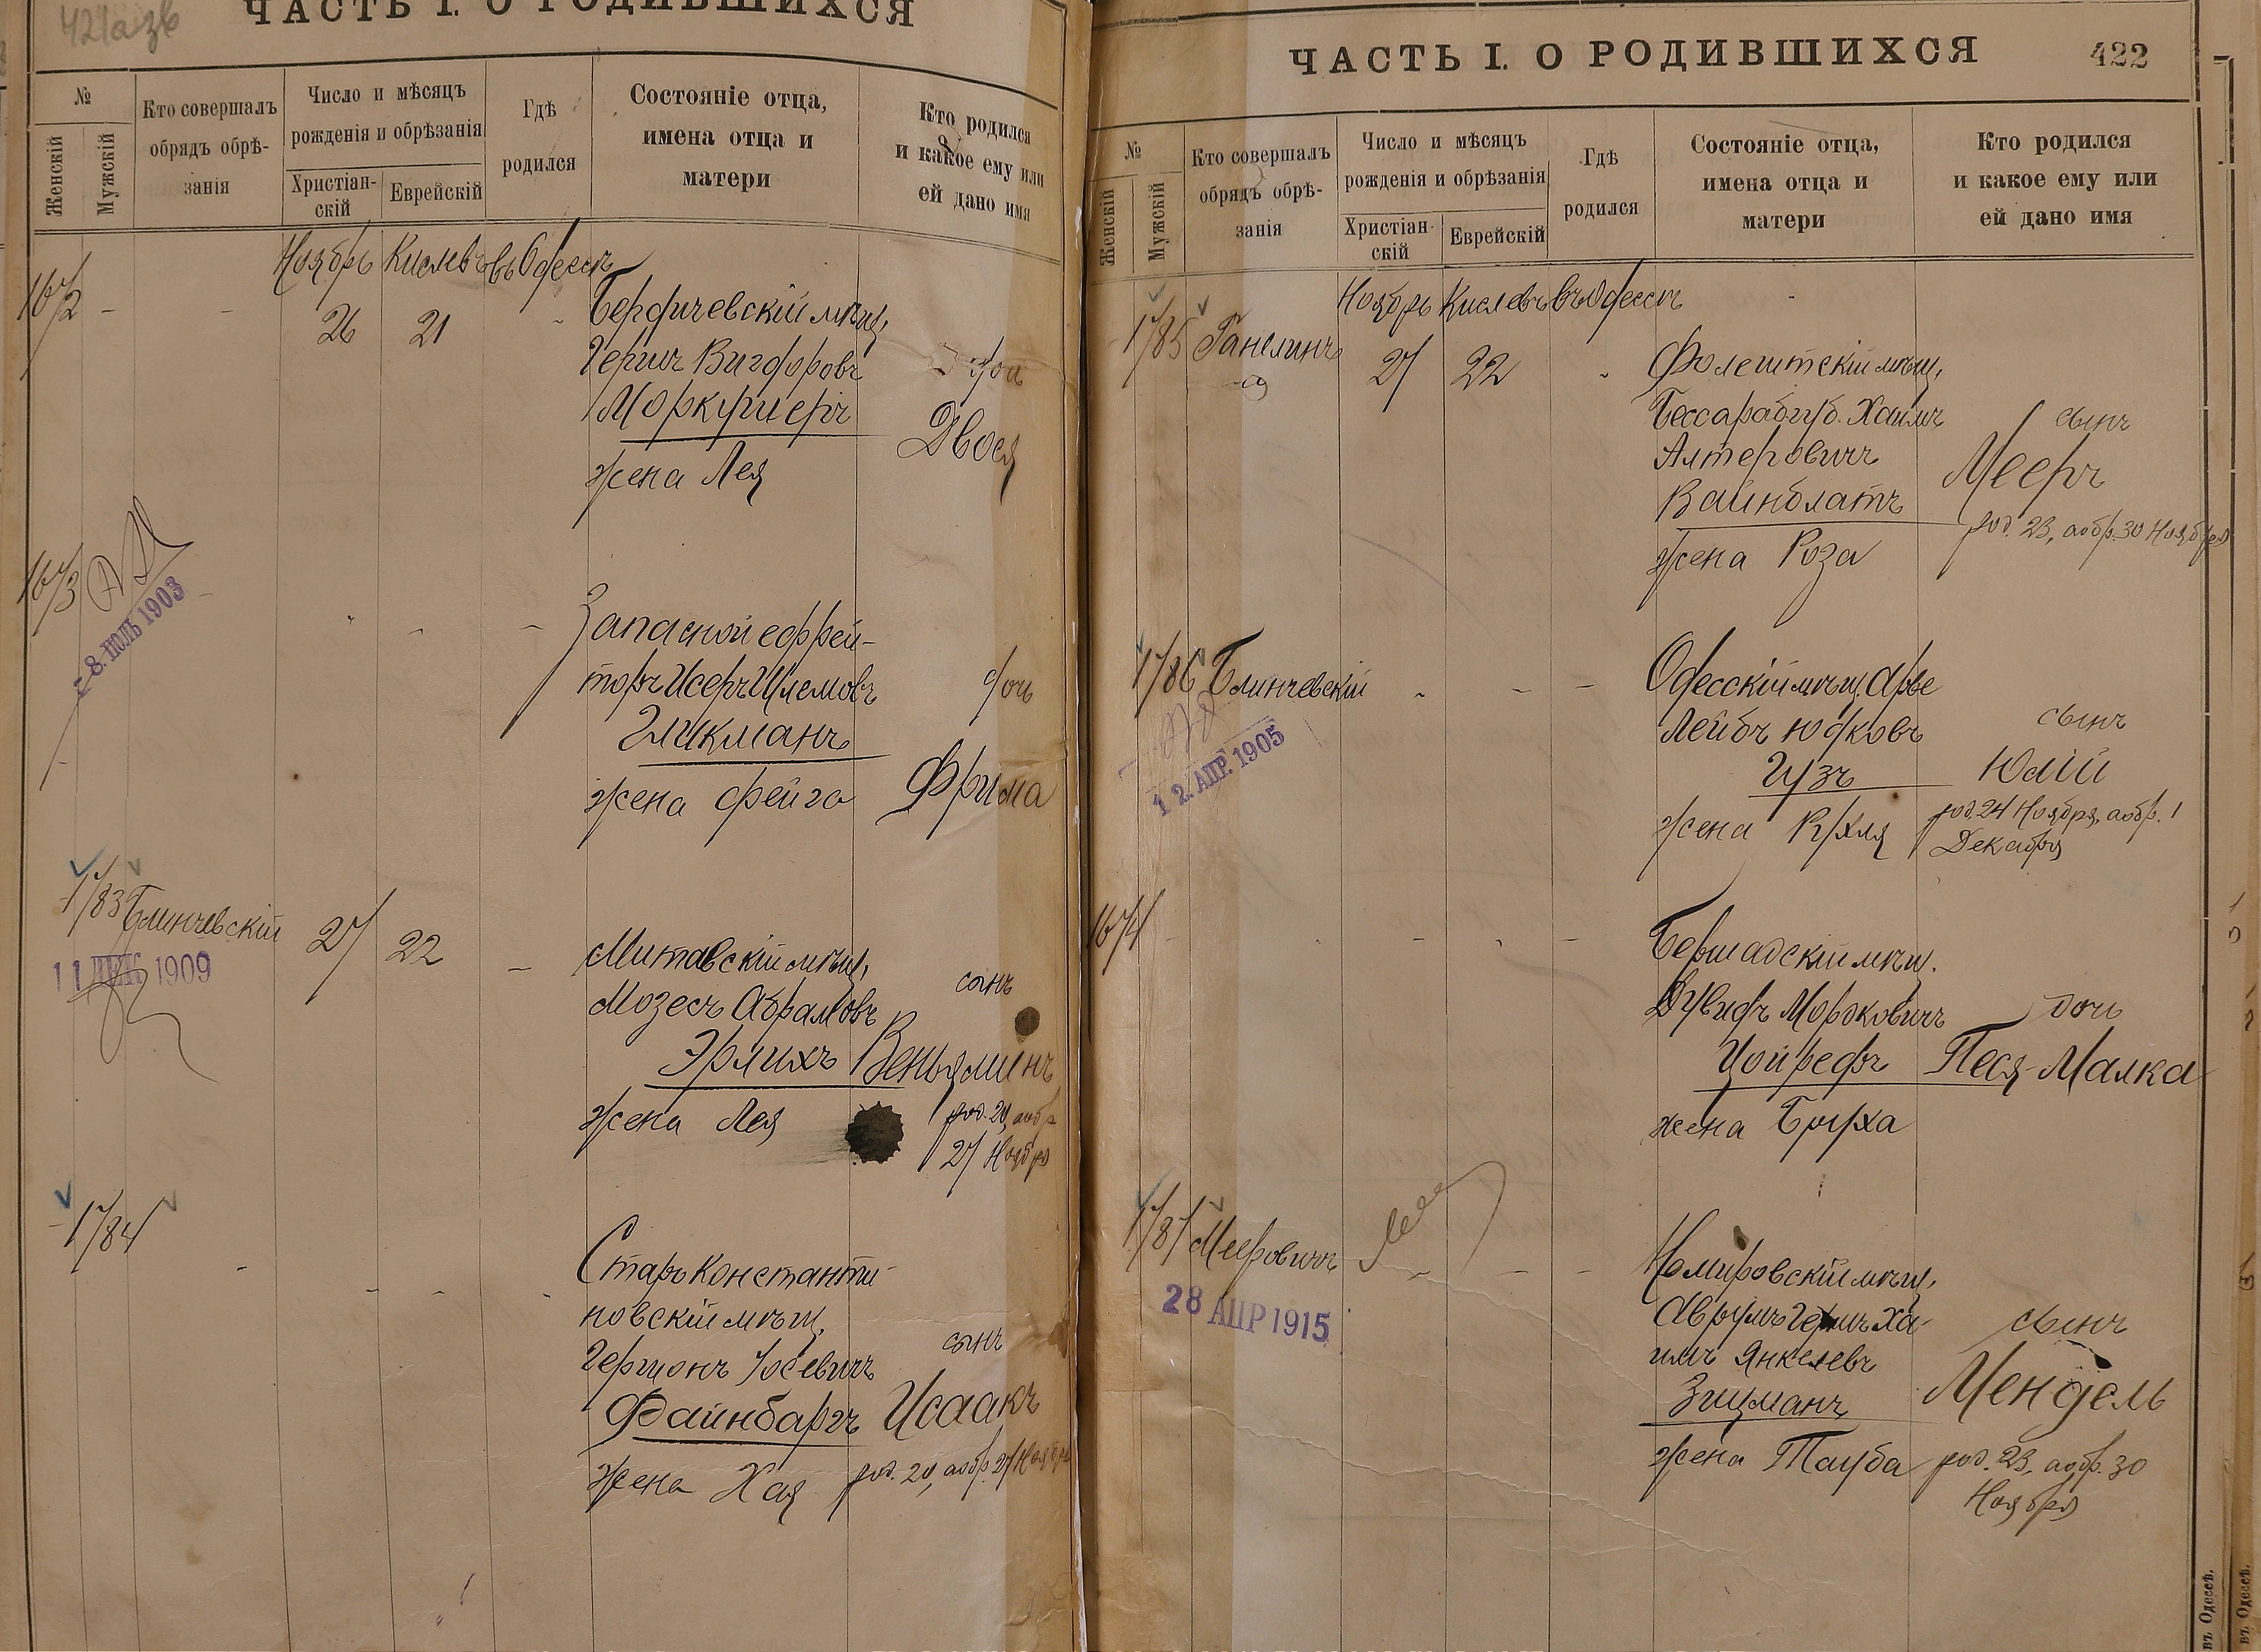 421а зв
ЧАСТЬ I. О РОДИВШИХСЯ
№
Женскій
Мужскій
Кто совершалъ
обрядъ обрѣ-
занія
Число и мѣсяцъ
рожденія и обрѣзанія
Христіан-
скій
Еврейскій
Гдѣ
родился
Состояніе отца,
имена отца и
матери
Кто родился
и какое ему или
ей дано имя
Ноябрь Кислевъ въ Одессѣ
1672 - - 26 21
Бердичевскій мѣщ.
Гершъ Вигдоровъ
Моркушеръ
жена Лея
дочь
Двося
1673
8. ІЮЛЬ 1903
Запасной ефрей-
торъ Исеръ Шлемовъ
Гликманъ
жена Фейга
дочь
Фрима
1783 Блинчевскій 27 22
11 ДЕК 1909
Митавскій мѣщ.
Мозесъ Абрамовъ
Эрлихъ
жена Лея
сынъ
Веньяминъ
род. 20, аобр
27 Ноября
1784
Старо Константи-
новскій мѣщ.
Гершонъ Іосевичъ
Файнбаргъ
жена Хая
сынъ
Исаакъ
род. 20, аобр. 27 Ноября
ЧАСТЬ I. О РОДИВШИХСЯ
422
№
Женскій
Мужскій
Кто совершалъ
обрядъ обрѣ-
занія
Число и мѣсяцъ
рожденія и обрѣзанія
Христіан-
скій
Еврейскій
Гдѣ
родился
Состояніе отца,
имена отца и
матери
Кто родился
и какое ему или
ей дано имя
Ноябрь Кислевъ въ Одессѣ
1785 Ганелинъ 27 22
Фолештскій мѣщ.
Бессараб. губ. Хаимъ
Алтеровичъ
Вайнблатъ
жена Роза
сынъ
Мееръ
род. 23, аобр. 30 Ноября
1786 Блинчевскій
12. АПР. 1905
Одесскій мѣщ. Арье
Лейбъ Юдковъ
Гузъ
жена Рухля
сынъ
Юлій
род. 24 Ноября, аобр. 1
Декабря
1674
Бершадскій мѣщ.
Дувидъ Мордковичъ
Цойрефъ
жена Бруха
дочь
Песя-Малка
1787 Меировичъ
28 АПР 1915
Немировскій мѣщ.
Аврумъ Гершъ Ха-
имъ Янкелевъ
Зицманъ
жена Тауба
сынъ
Мендель
род. 23, аобр. 30
Ноября
въ Одессѣ.
въ Одессѣ.